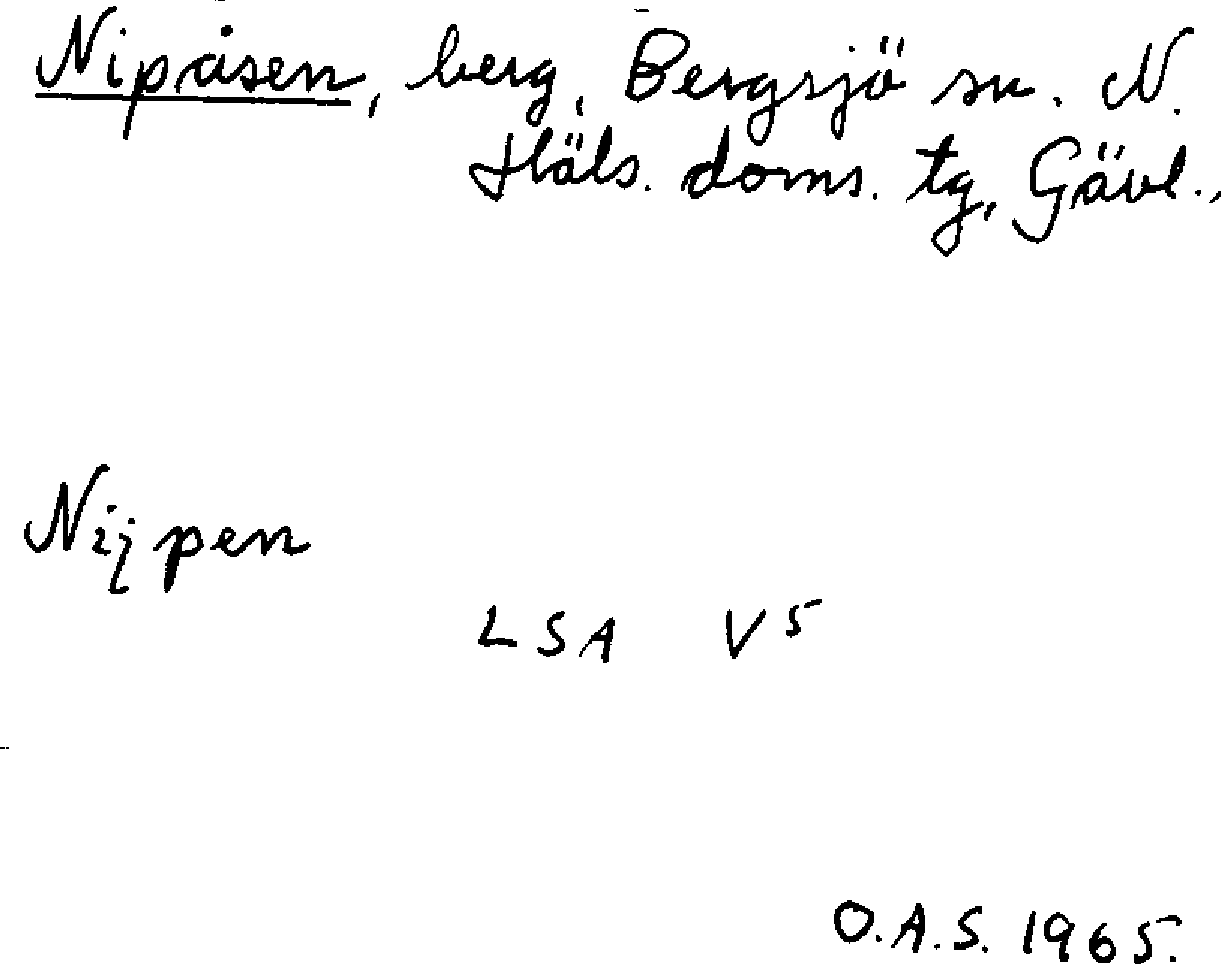 Nipåsen, berg, Bergsjö sn. N.
Häls. doms. tg, Gävl.,
Nijpen
LSA V5
O.A.S. 1965.